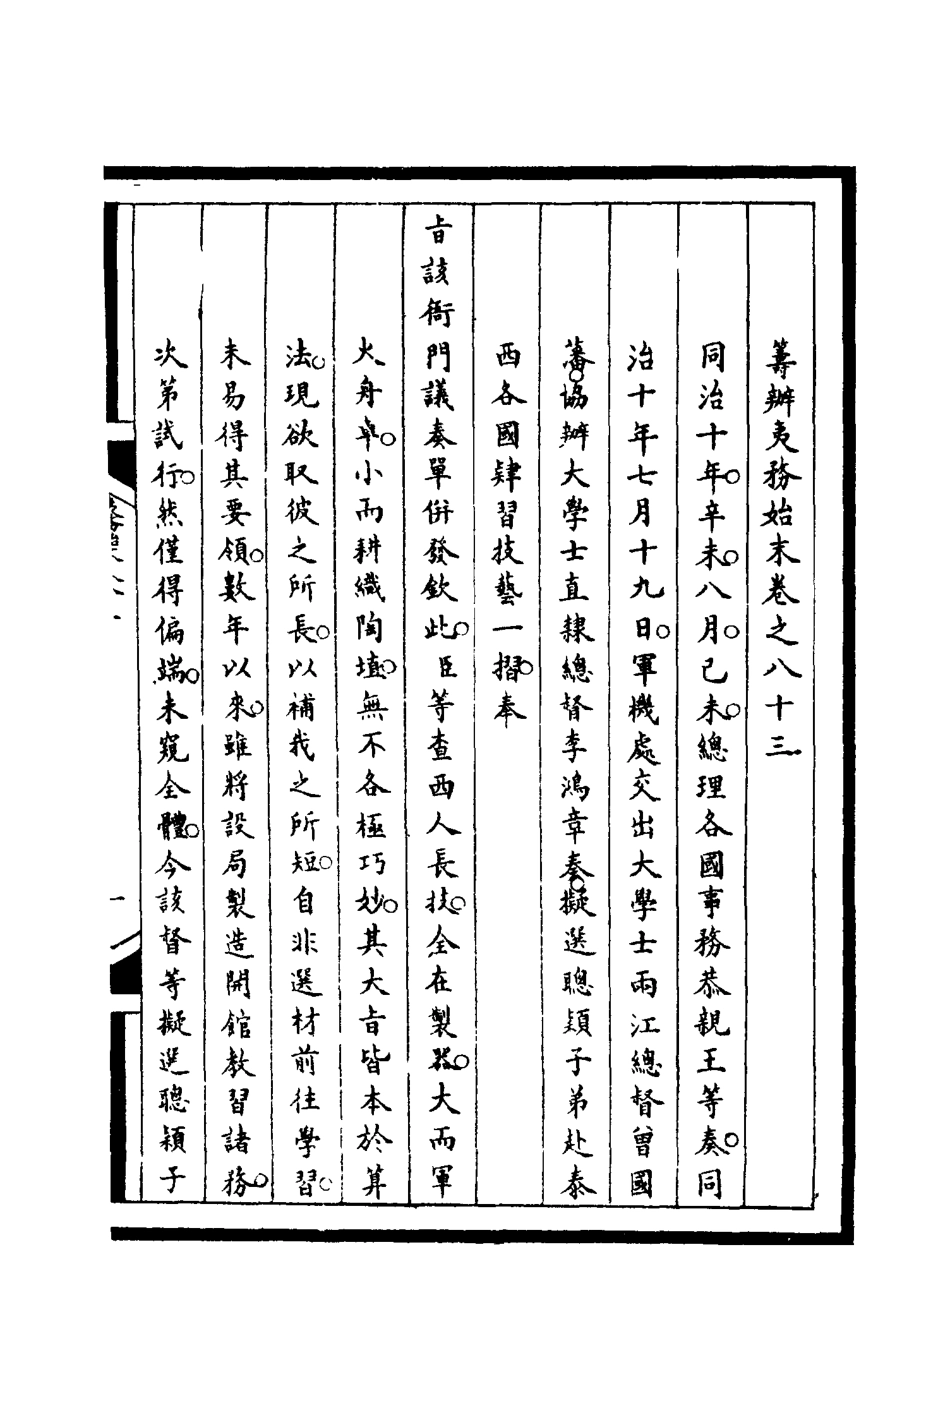 籌辦夷務始末卷之八十三
同治十年。辛未。八月。己未。總理各國事務恭親王等奏。同
治十年七月十九日。軍機處交出大學士兩江總督曾國
藩。協辦大學士直隸總督李鴻章奏。擬選聰穎子弟赴泰
西各國肄習技藝一摺。奉
旨該衙門議奏單併發欽此。臣等查西人長技。全在製器。大而軍
火舟車。小而耕織陶埴。無不各極巧妙。其大旨皆本於算
法。現欲取彼之所長。以補我之所短。自非選材前往學習。
未易得其要領。數年以來。雖將設局製造開館教習諸務。
次第試行。然僅得偏端。未窺全體。今該督等擬選聰穎子